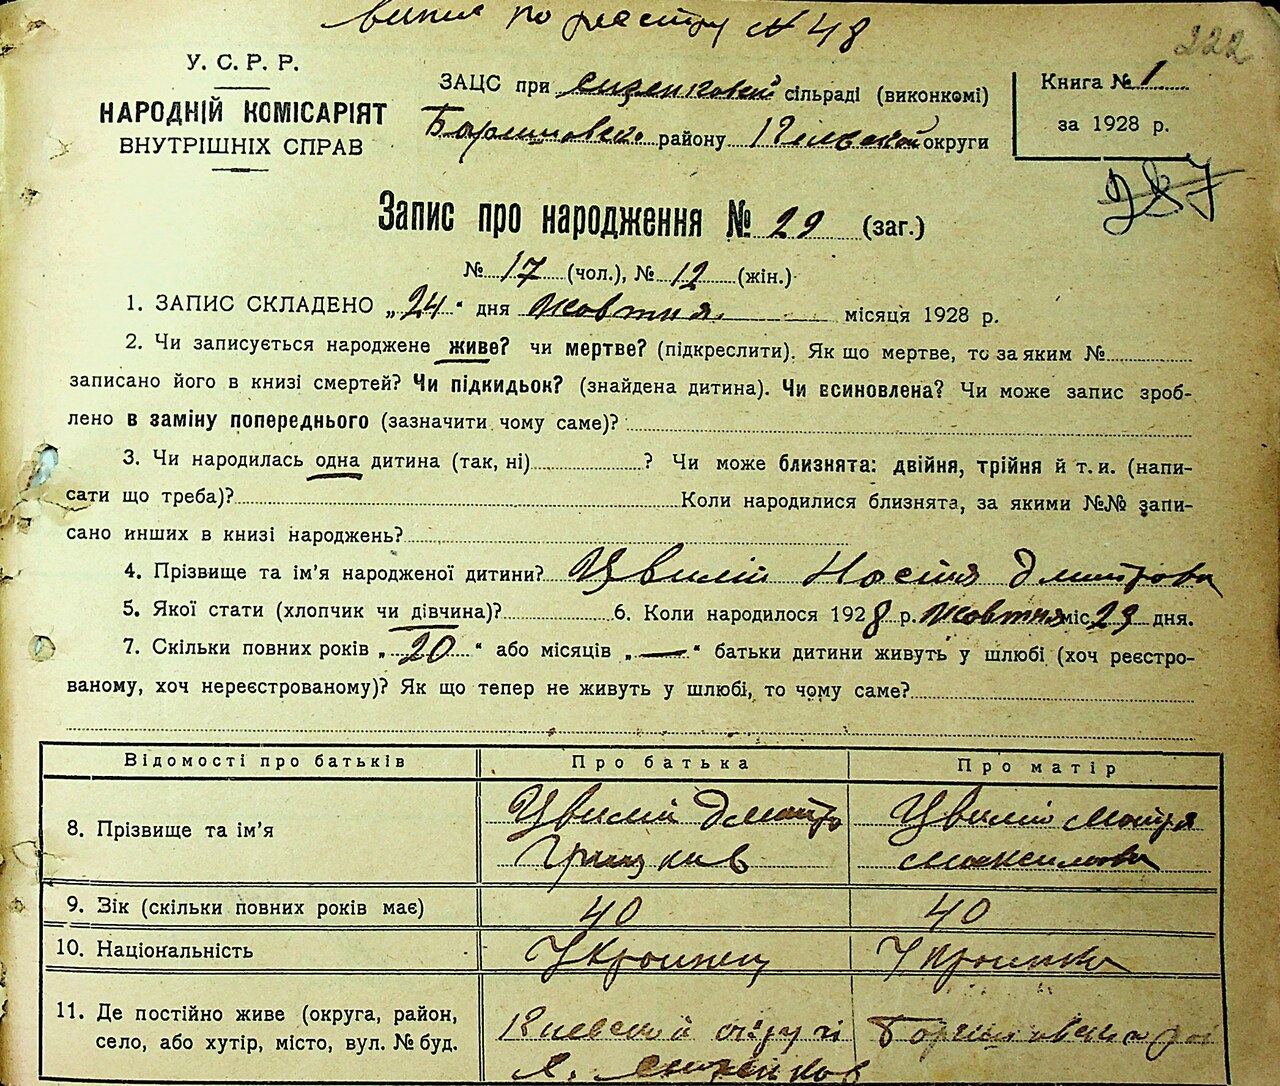 випис по реєстру № 48
222
У. С. Р. Р.
НАРОДНІЙ КОМІСАРІЯТ
ВНУТРІШНІХ СПРАВ
ЗАЦС при сільраді (виконкомі)
району Київської округи
Книга № 1
за 1928 р.
287
Запис про народження № 29 (заг.)
№ 17 (чол.), № 12 (жін.)
1. ЗАПИС СКЛАДЕНО „24“ дня жовтня місяця 1928 р.
2. Чи записується народжене живе? чи мертве? (підкреслити). Як що мертве, то за яким №
записано його в книзі смертей? Чи підкидьок? (знайдена дитина). Чи всиновлена? Чи може запис зроб-
лено в заміну попереднього (зазначити чому саме)?
3. Чи народилась одна дитина (так, ні) ? Чи може близнята: двійня, трійня й т. и. (напи-
сати що треба)? Коли народилися близнята, за якими №№ запи-
сано инших в книзі народжень?
4. Прізвище та ім'я народженої дитини? Цвилій Настя Дмитрова
5. Якої стати (хлопчик чи дівчина)? 6. Коли народилося 1928 р. жовтня міс. 23 дня.
7. Скільки повних років „20“ або місяців „—“ батьки дитини живуть у шлюбі (хоч реєстро-
ваному, хоч нереєстрованому)? Як що тепер не живуть у шлюбі, то чому саме?
Відомості про батьків Про батька Про матір
8. Прізвище та ім'я Цвилій Дмитро Цвилій Мотря
Грицьків Максимова
9. Зік (скільки повних років має) 40 40
10. Національність Українец Українка
11. Де постійно живе (округа, район,
село, або хутір, місто, вул. № буд.